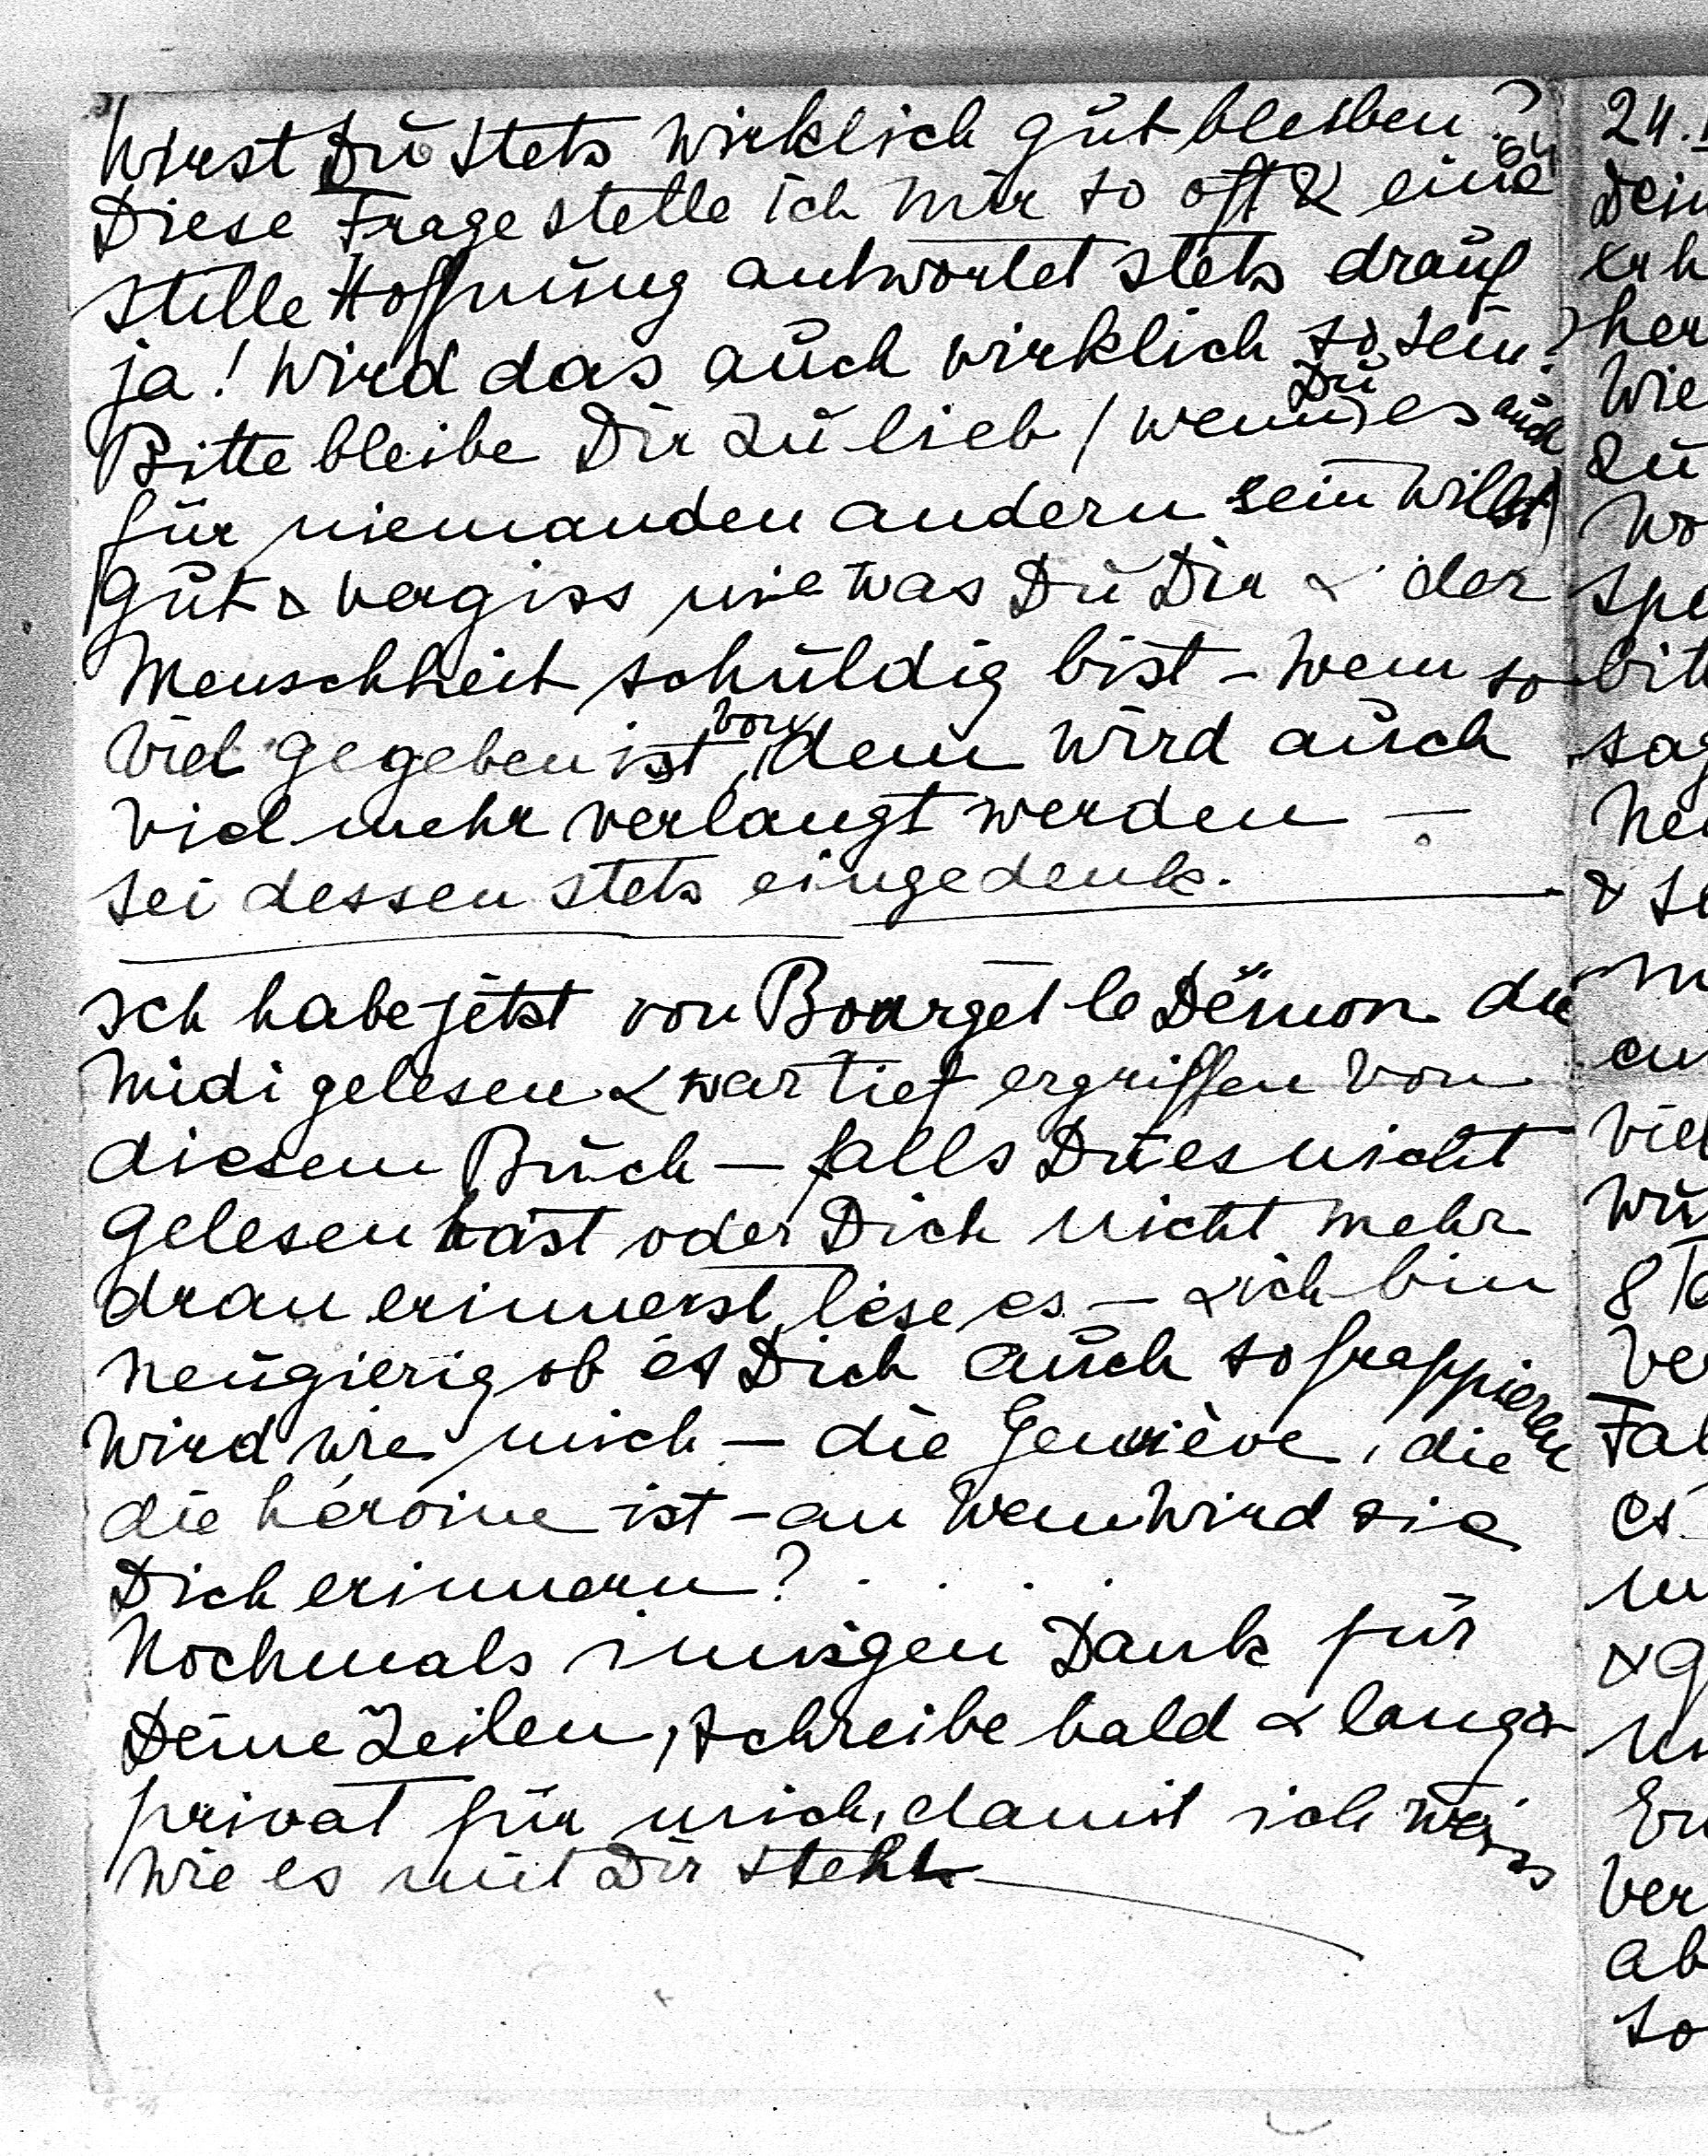 Wirst Du stets wirklich gut bleiben?
64
Diese Frage stelle ich mir so oft & eine
stille Hoffnung antwortet stets drauf
ja! Wird das auch wirklich so sein?
Bitte bleibe Dir zu lieb / wenn Du es auch
für niemanden andern sein willst)
gut & vergiss nie was Du Dir & der
Menschheit schuldig bist – wem so
viel gegeben ist, von dem wird auch
viel mehr verlangt werden –
sei dessen stets eingedenk.
Ich habe jetzt von Bourget le Démon du
midi gelesen & war tief ergriffen von
diesem Buch – falls Du es nicht
gelesen hast oder Dich nicht mehr
dran erinnerst, lese es – & ich bin
neugierig ob es Dich auch so frappieren
wird wie mich – die Geneviève, die
die héroine ist – an wem wird sie
Dich erinnern? . . . .
Nochmals innigen Dank für
Deine Zeilen, schreibe bald & lange
privat für mich, damit ich weiss
wie es mit Dir steht
24.
Dein
her
Wie
zu
wo
bitt
sag
&
viel
8
Ver
es
ver
ab
so